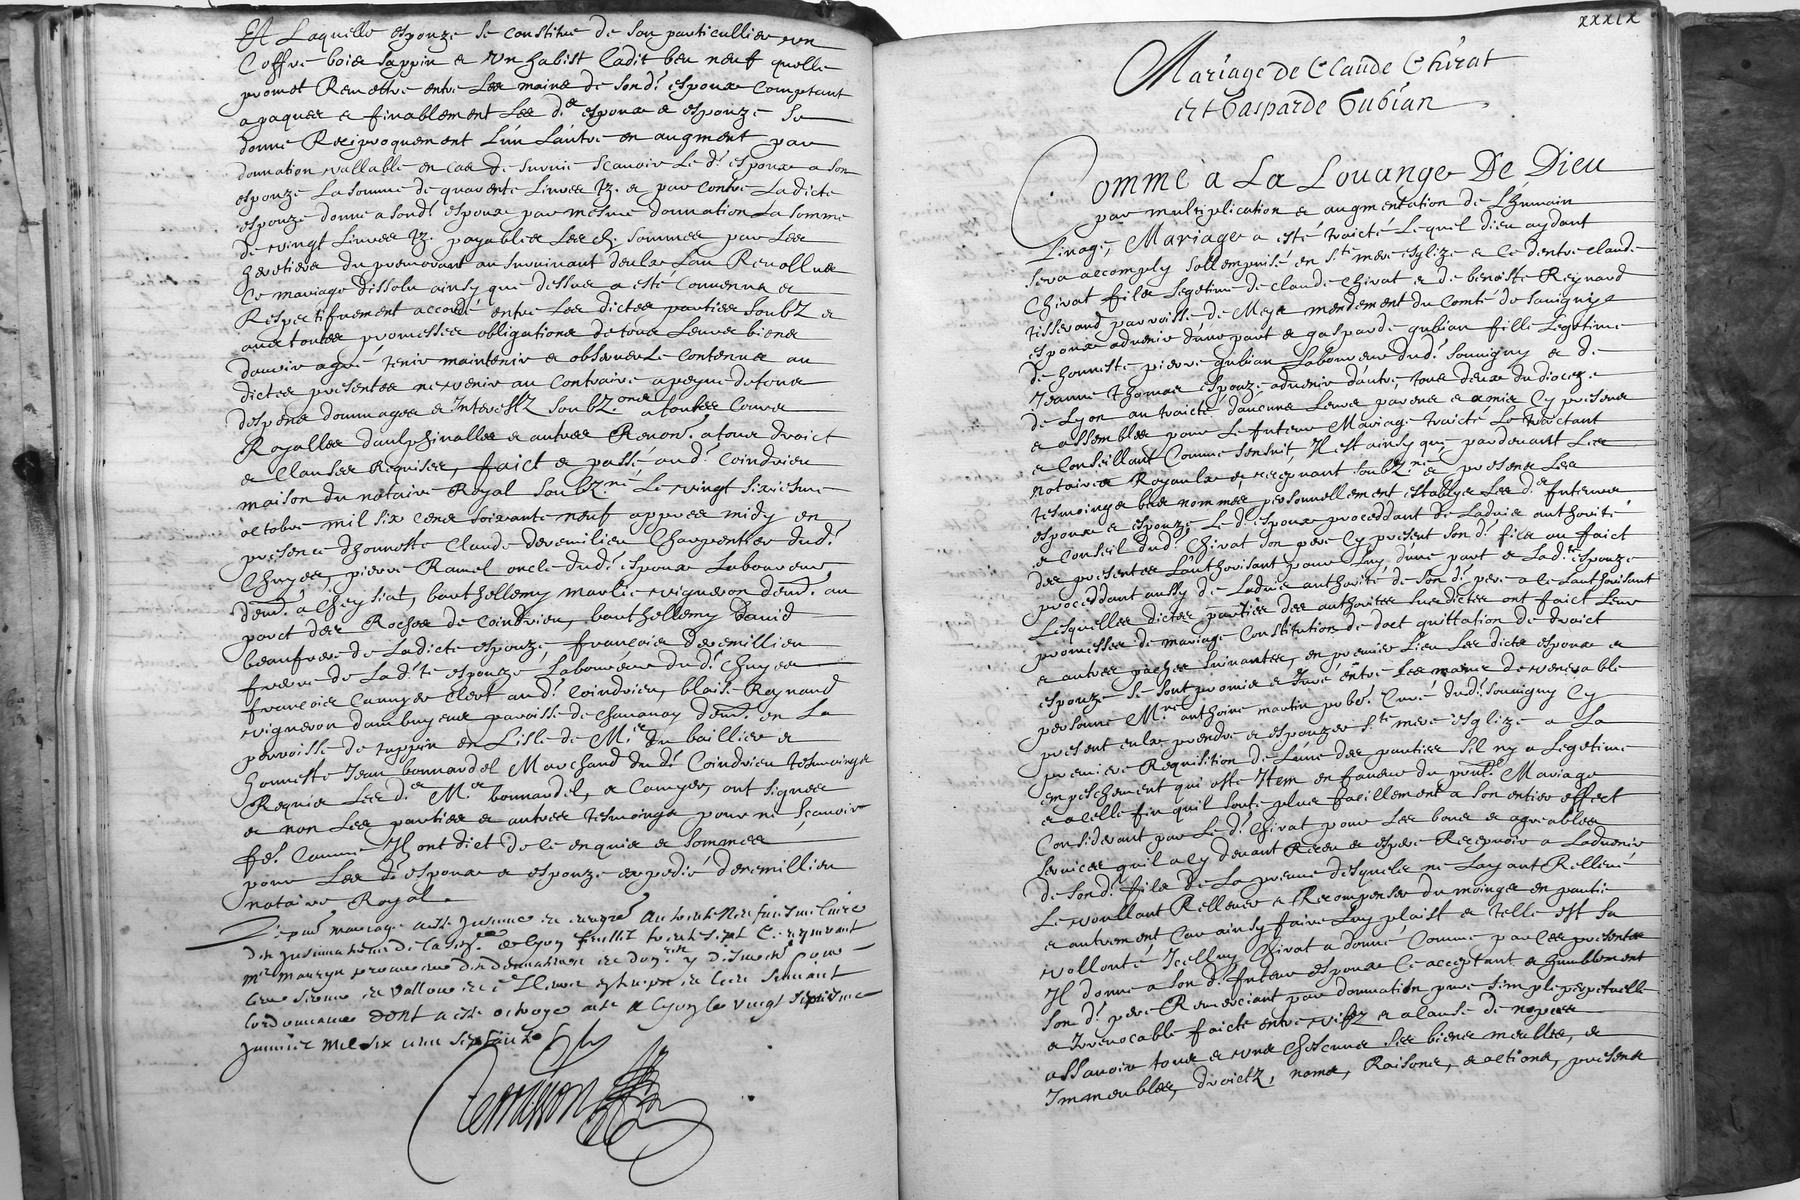 Et Laquelle espouze se constitue de son particullier un
Coffre bois sappin et un habist ladit ben neuf quelle
promet Remettre entre Les mains de sond. espoux Comptant
a paques et finablement Les ds espoux et espouze Se
donne Reciproquement L'un Lautre en augment par
donnation vallable en Cas de survie scavoir Le d. espoux a son
espouze La somme de quarente Livres tz. et par contre Ladicte
espouze donne a sond. espoux par mesme donnation La somme
de vingt Livres tz. payables Les d. sommes par Les
heretiers du premourant au survivant deulx Lau
Ce mariage dissolu ainsy que dessus a esté Convenu et
Respectifvement accordé entre Les dictes parties soubz et
avec toutes promesses obligations de tous Leurs biens
davoir agré tenir maintenir et observer Le Contenu au
dictes presentes ne venir au Contraire a peyne de tous
despens dommages et Interestz soubz.ons a toutes Cours
Royalles daulphinalles et autres Renon. a tous droict
et Clauses Requises, faict et passé aud. Coindrieu
maison du notaire Royal soubz.né Le vingt sixiesme
octobre mil six cens soixante neuf appres midy en
presence dhonneste Claude devemilieu Charpentier dud.
Chuyes, pierre Ramel oncle dud. espoux Laboureur
dem.t a Cheyssiat, barthellemy marlie vigneron dem.t au
parct des Roches de Coindrieu, barthellemy David
beaufrere de Ladicte espouze, francois devemillieu
frere de La d.te espouze Laboureur dud. Chuyes
francois Camyer Clerc aud. Coindrieu, blaise Raynaud
vigneron dambuyeux paroisse de Chavanay dem.t en La
parroisse de tuppin en Lisle de M.r du baillier et
honneste Jean bonnardel Marchand dud. Coindrieu tesmoings
Requis Les ds Ms bonnardel, et Camyer, ont signés
et non Les parties et autres tesmoings pour ne scavoir
fe. Comme Ils ont dict de ce enquis et sommés
pour Les ds espoux et espouze expedié devemillieu
notaire Royal.
Le pnt mariage acte Insinué et enregré au trente neufiesme livre
des Insinuations de la sen. de Lyon feullet trente sept Ce requerant
mr maureyn procureur
Lordonnance dont acte octroye acte a Lyon le vingt sixiesme
Janvier mil six cens septante
xxxix
Mariage de Claude Chirat
et Gasparde Gubian
Comme à La Louange De Dieu
par multiplication et augmentation de L'humain
Linage, Mariage a esté traicté Lequel dieu aydant
sera accomply sollempnisé en ste mere esglize et Ce dentre claude
Chirat fils Legetime de claude Chirat et de benoiste Reynaud
tisserand parroisse de Meys mandement du Comté de Savigny
espoux advenir dune part et gasparde gubian fille Legetime
de honneste pierre gubian Laboureur dud. Souvigny et de
Jeanne thomas espouze advenir d'autre, tous deux du dioceze
de Lyon au traicté daucuns Leurs parens et amis Cy presens
et assembles pour Le futeur Mariage traicté Le traictant
et Conseillant Comme sensuit Il est ainsy que pardevant Les
notaires Royaulx et recepvant soubz.né et presens Les
tesmoings bas nommes personnellement establys Les ds futeurs
espoux et espouze, Le d. espoux proceddant de Ladvis authorité
et Conseil dud. Chirat son pere Cy present son d. fils au faict
des presentes Lauthorisant pour Luy, d'une part et La d.te espouze
proceddant aussy de Ladvis authorité de son d. pere a ce Lauthorisant
Lesquelles dictes parties des authorites susdictes ont faict Leur
promesses de mariage Constitution de doct quittation de droict
et autres paches suivantes, en premier Lieu Les dicts espoux et
espouze se sont promis et Juré entre Les mains de venerable
personne M.re anthoine martin pbr. Curé dud. Souvigny Cy
present eulx prendre et espouzer ste mere esglize a La
premiere Requisition de Lune des parties sil ny a Legetime
empeschement qui oste Item en faveur du pnt Mariage
et a celle fin quil sorte plus facillement a son entier effect
Considerant par Le d. Chirat pour Les bons et agreables
services quil a cy devant Receu et espere Recepvoir a Ladvenir
de son d. fils de La preuve desquels ne Layant Rellevé
Le voullant Relever et Recompenser du moings en partie
et autrement Car ainsy faire Luy plaist et telle est sa
vollonté Icelluy Chirat a donné, Comme par Ces presentes
Il donne a son d. futeur espoux Ce acceptant et humblement
son d. pere Remerciant par donnation pure simple perpetuelle
et Irrevocable faicte entre vifz et a Cause de nopces
assavoir tous et uns Chescuns ses biens meubles, et
Immeubles, droictz, noms, Raisons, et actions, presens